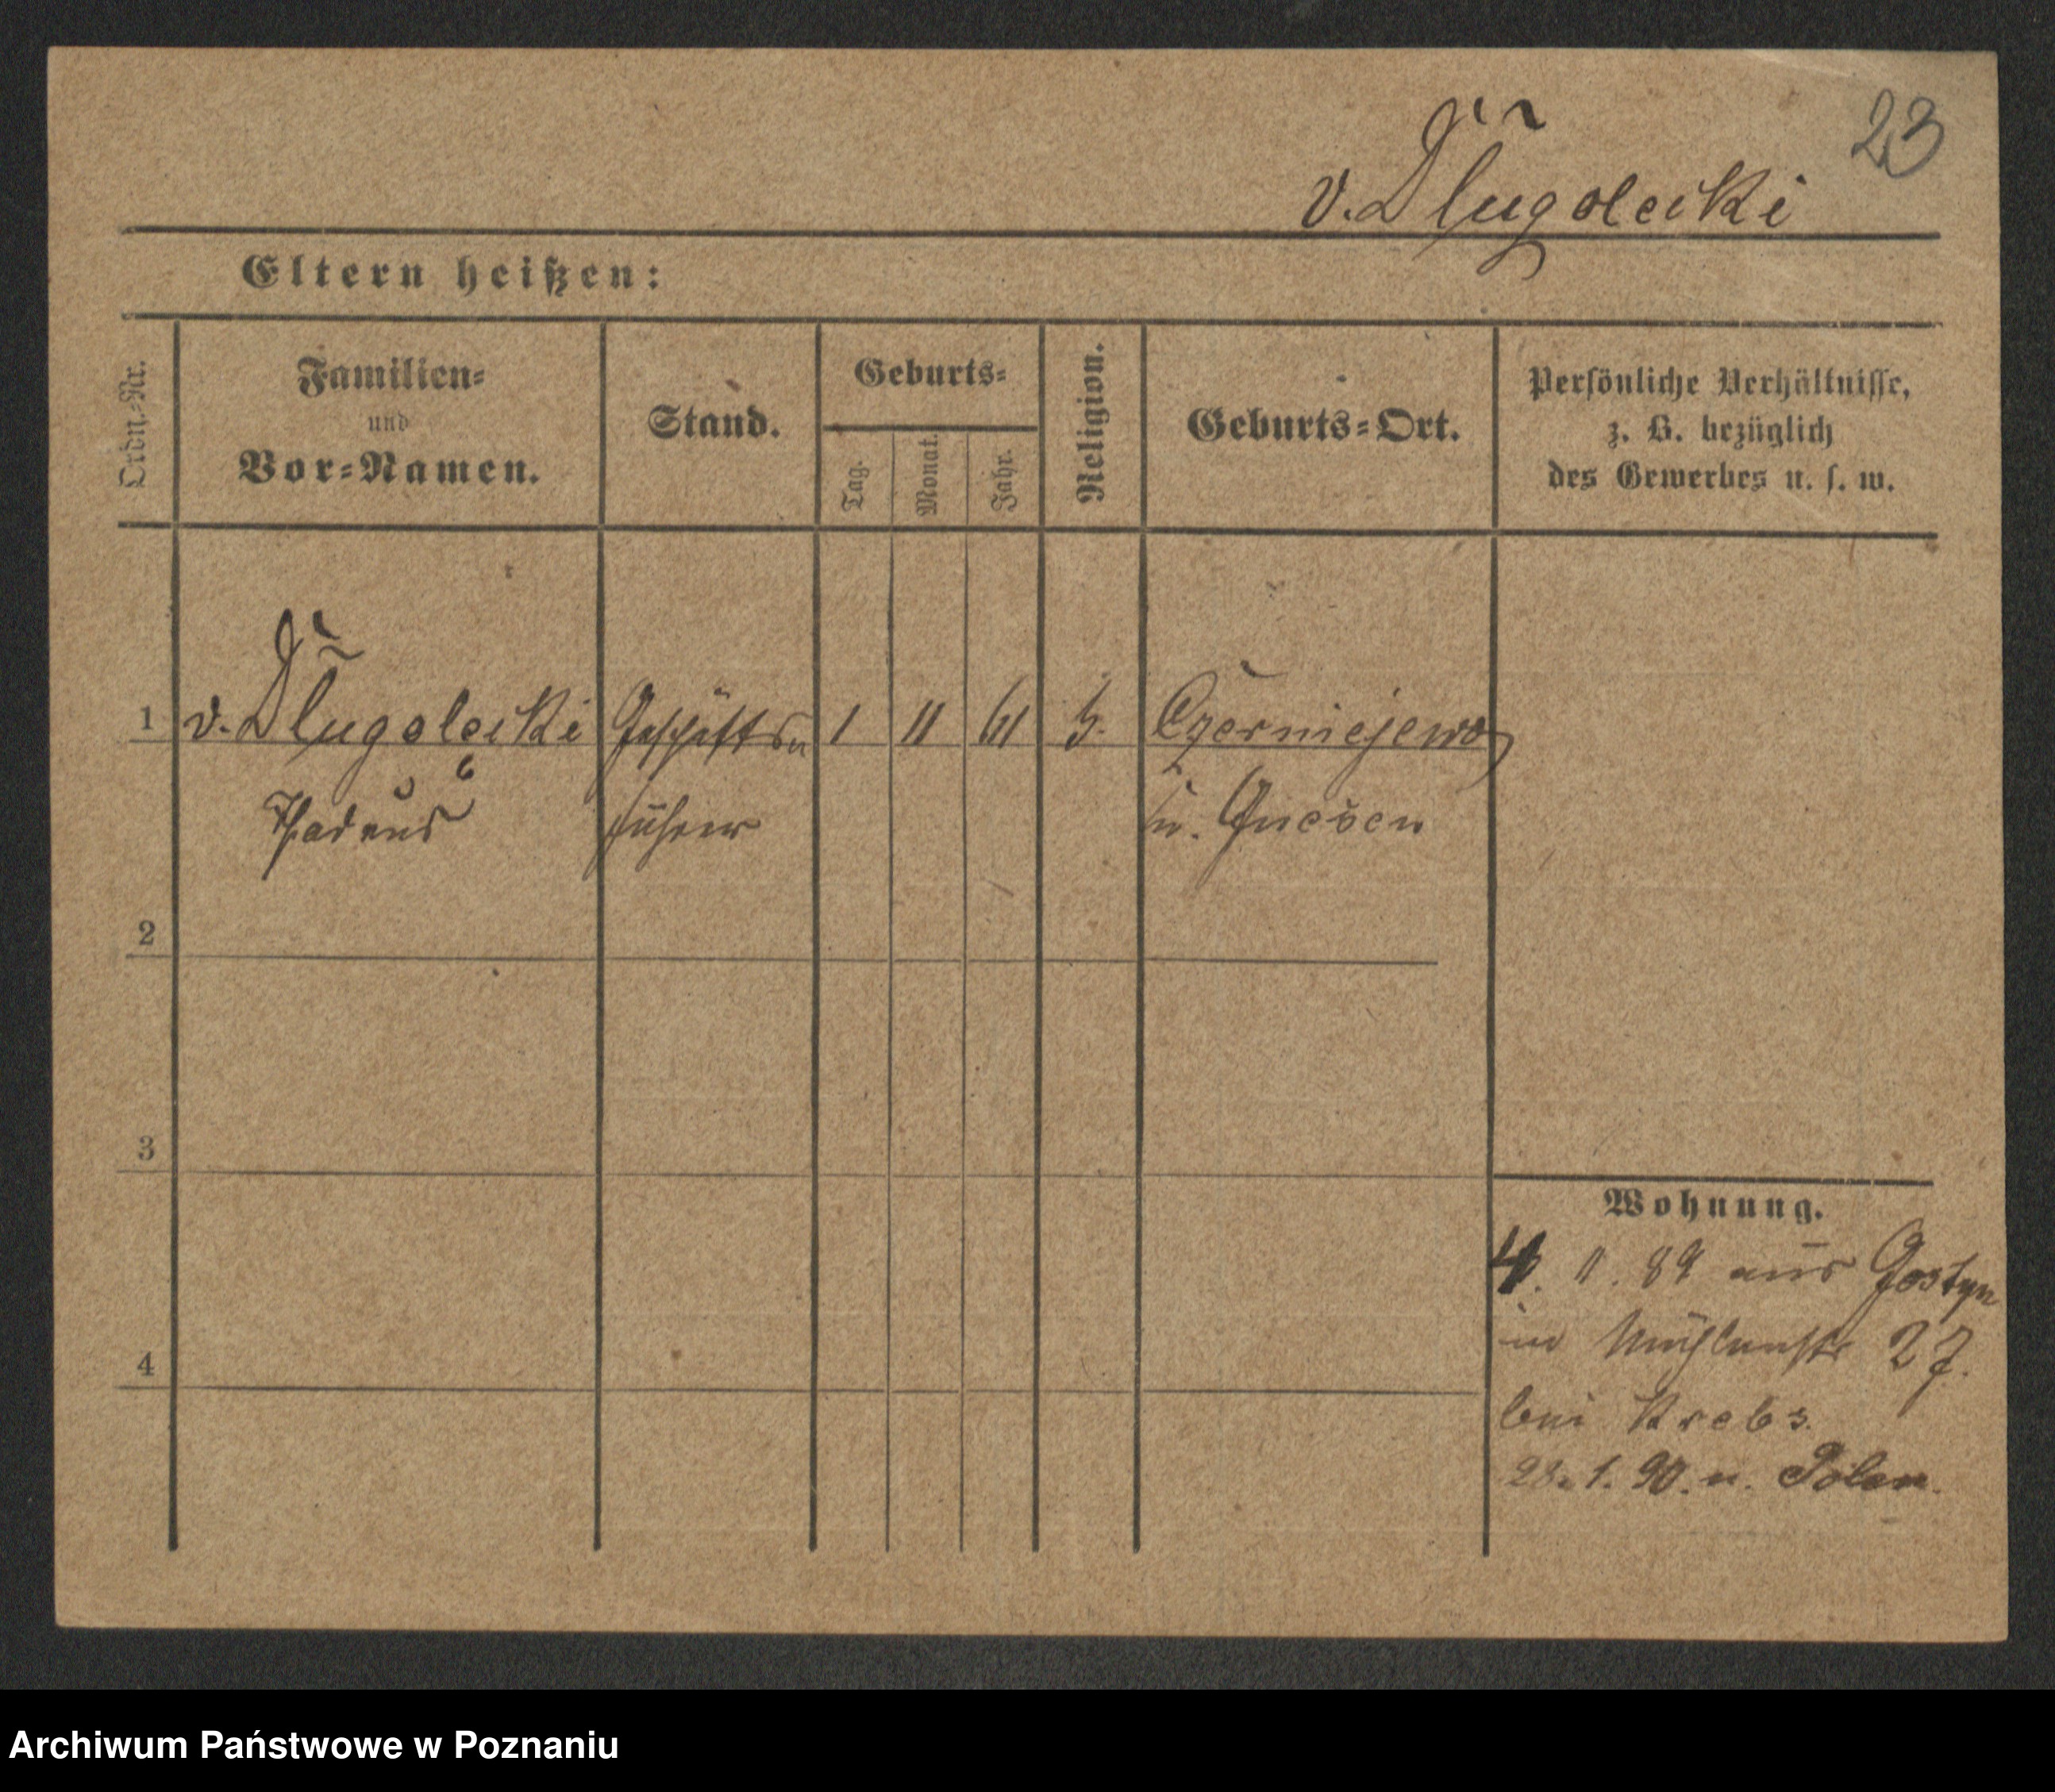 23
v. Dlugolecki
Eltern heißen:
Ordn.-Nr.
Familien-
und
Vor-Namen.
Stand.
Geburts-
Tag.
Monat.
Jahr.
Religion.
Geburts-Ort.
Persönliche Verhältnisse,
z. B. bezüglich
des Gewerbes u. s. w.
1 v. Dlugolecki Geschäfts 1 11 61 Czerniejewo
Thadeus führer Gnesen
2
3
4
Wohnung.
4. 11. 89 aus Gostyn
Mühlenstr 27.
bei Krebs.
1. 90. n. Polen.
Archiwum Państwowe w Poznaniu